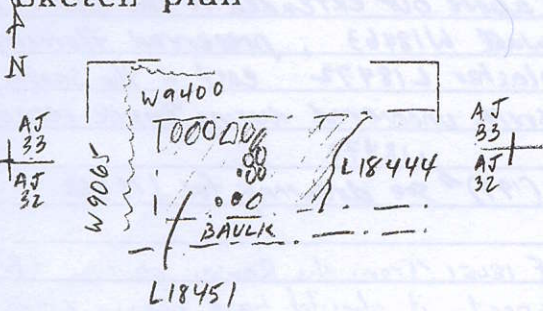 Sketch plan
N
W9400
AJ
33
AJ
32
W9065
L18444
AJ
33
AJ
32
BAULK
L18451